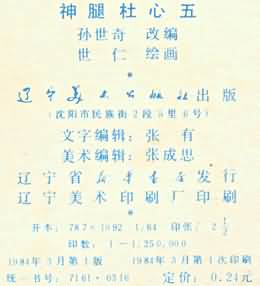 神腿杜心五
孙世奇 改编
世仁 绘画
辽宁美术出版社出版
(沈阳市民族街2段5里6号)
文字编辑：张有
美术编辑：张成思
辽宁省新华书店发行
辽宁美术印刷厂印刷
开本：787×1092 1/64 印张：2 1/2
印数：1—1,250,000
1984年3月第1版 1984年3月第1次印刷
统一书号：7161·0316 定价：0.24元